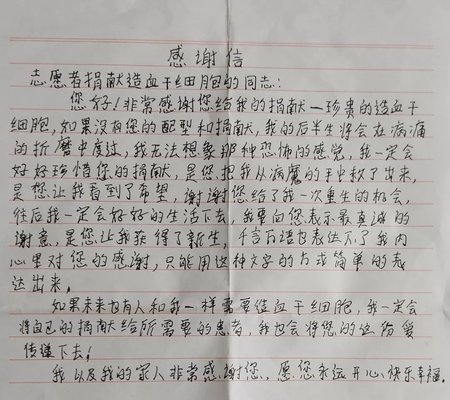 感谢信
志愿者捐献造血干细胞的同志:
您好!非常感谢您给我的捐献一珍贵的造血干
细胞,如果没有您的配型和捐献,我的后半生将会在病痛
的折磨中度过,我无法想象那种恐怖的感觉,我一定会
好好珍惜您的捐献,是您把我从病魔的手中救了出来,
是您让我看到了希望,谢谢您给了我一次重生的机会,
往后我一定会好好的生活下去,我要向您表示最真诚的
谢意,是您让我获得了新生,千言万语也表达不了我内
心里对您的感谢,只能用这种文字的方式简单的表
达出来。
如果未来也有人和我一样需要造血干细胞,我一定会
将自己的捐献给所需要的患者,我也会将您的这份爱
传递下去!
我以及我的家人非常感谢您,愿您永远开心快乐幸福。